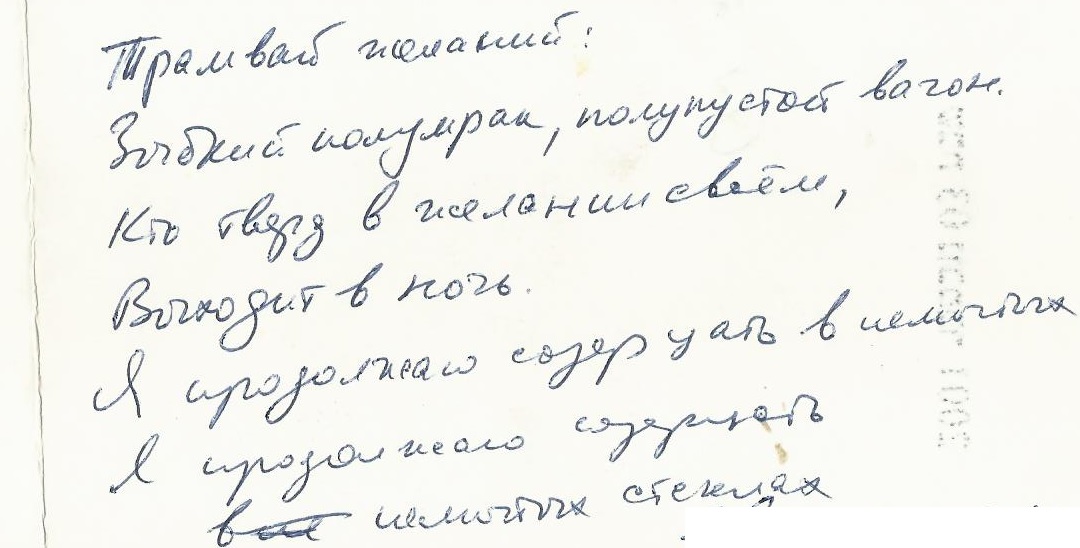 Трамвай желаний:
Зыбкий полумрак, полупустой вагон.
Кто твёрд в желании своём,
Выходит в ночь.
Я продолжаю созерцать в немытых
Я продолжаю созерцать
в немытых стёклах